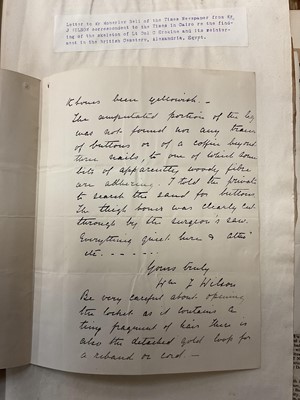 Letter to Mr Moberley Bell of the Times Newspaper from My
J WILSON Correspondent to the Times in Cairo re the find-
ing of the skeleton of Lt Col C Erskine and its reinter-
ment in the British Cemetery, Alexandria, Egypt.
have been yellowish. -
The amputated portion of the leg
was not found nor any traces
of buttons or of a coffin beyond
three nails, to one of which some
bits of apparently woody fibre
are adhering. I told the private
to search the sand for buttons
The thigh bones was clearly cut
through by the surgeon's saw.
Everything quiet here &
Yours truly
Wm J Wilson
Be very careful about opening
the locket as it contains a
tiny fragment of hair there is
also the detached gold loop for
a riband or cord -